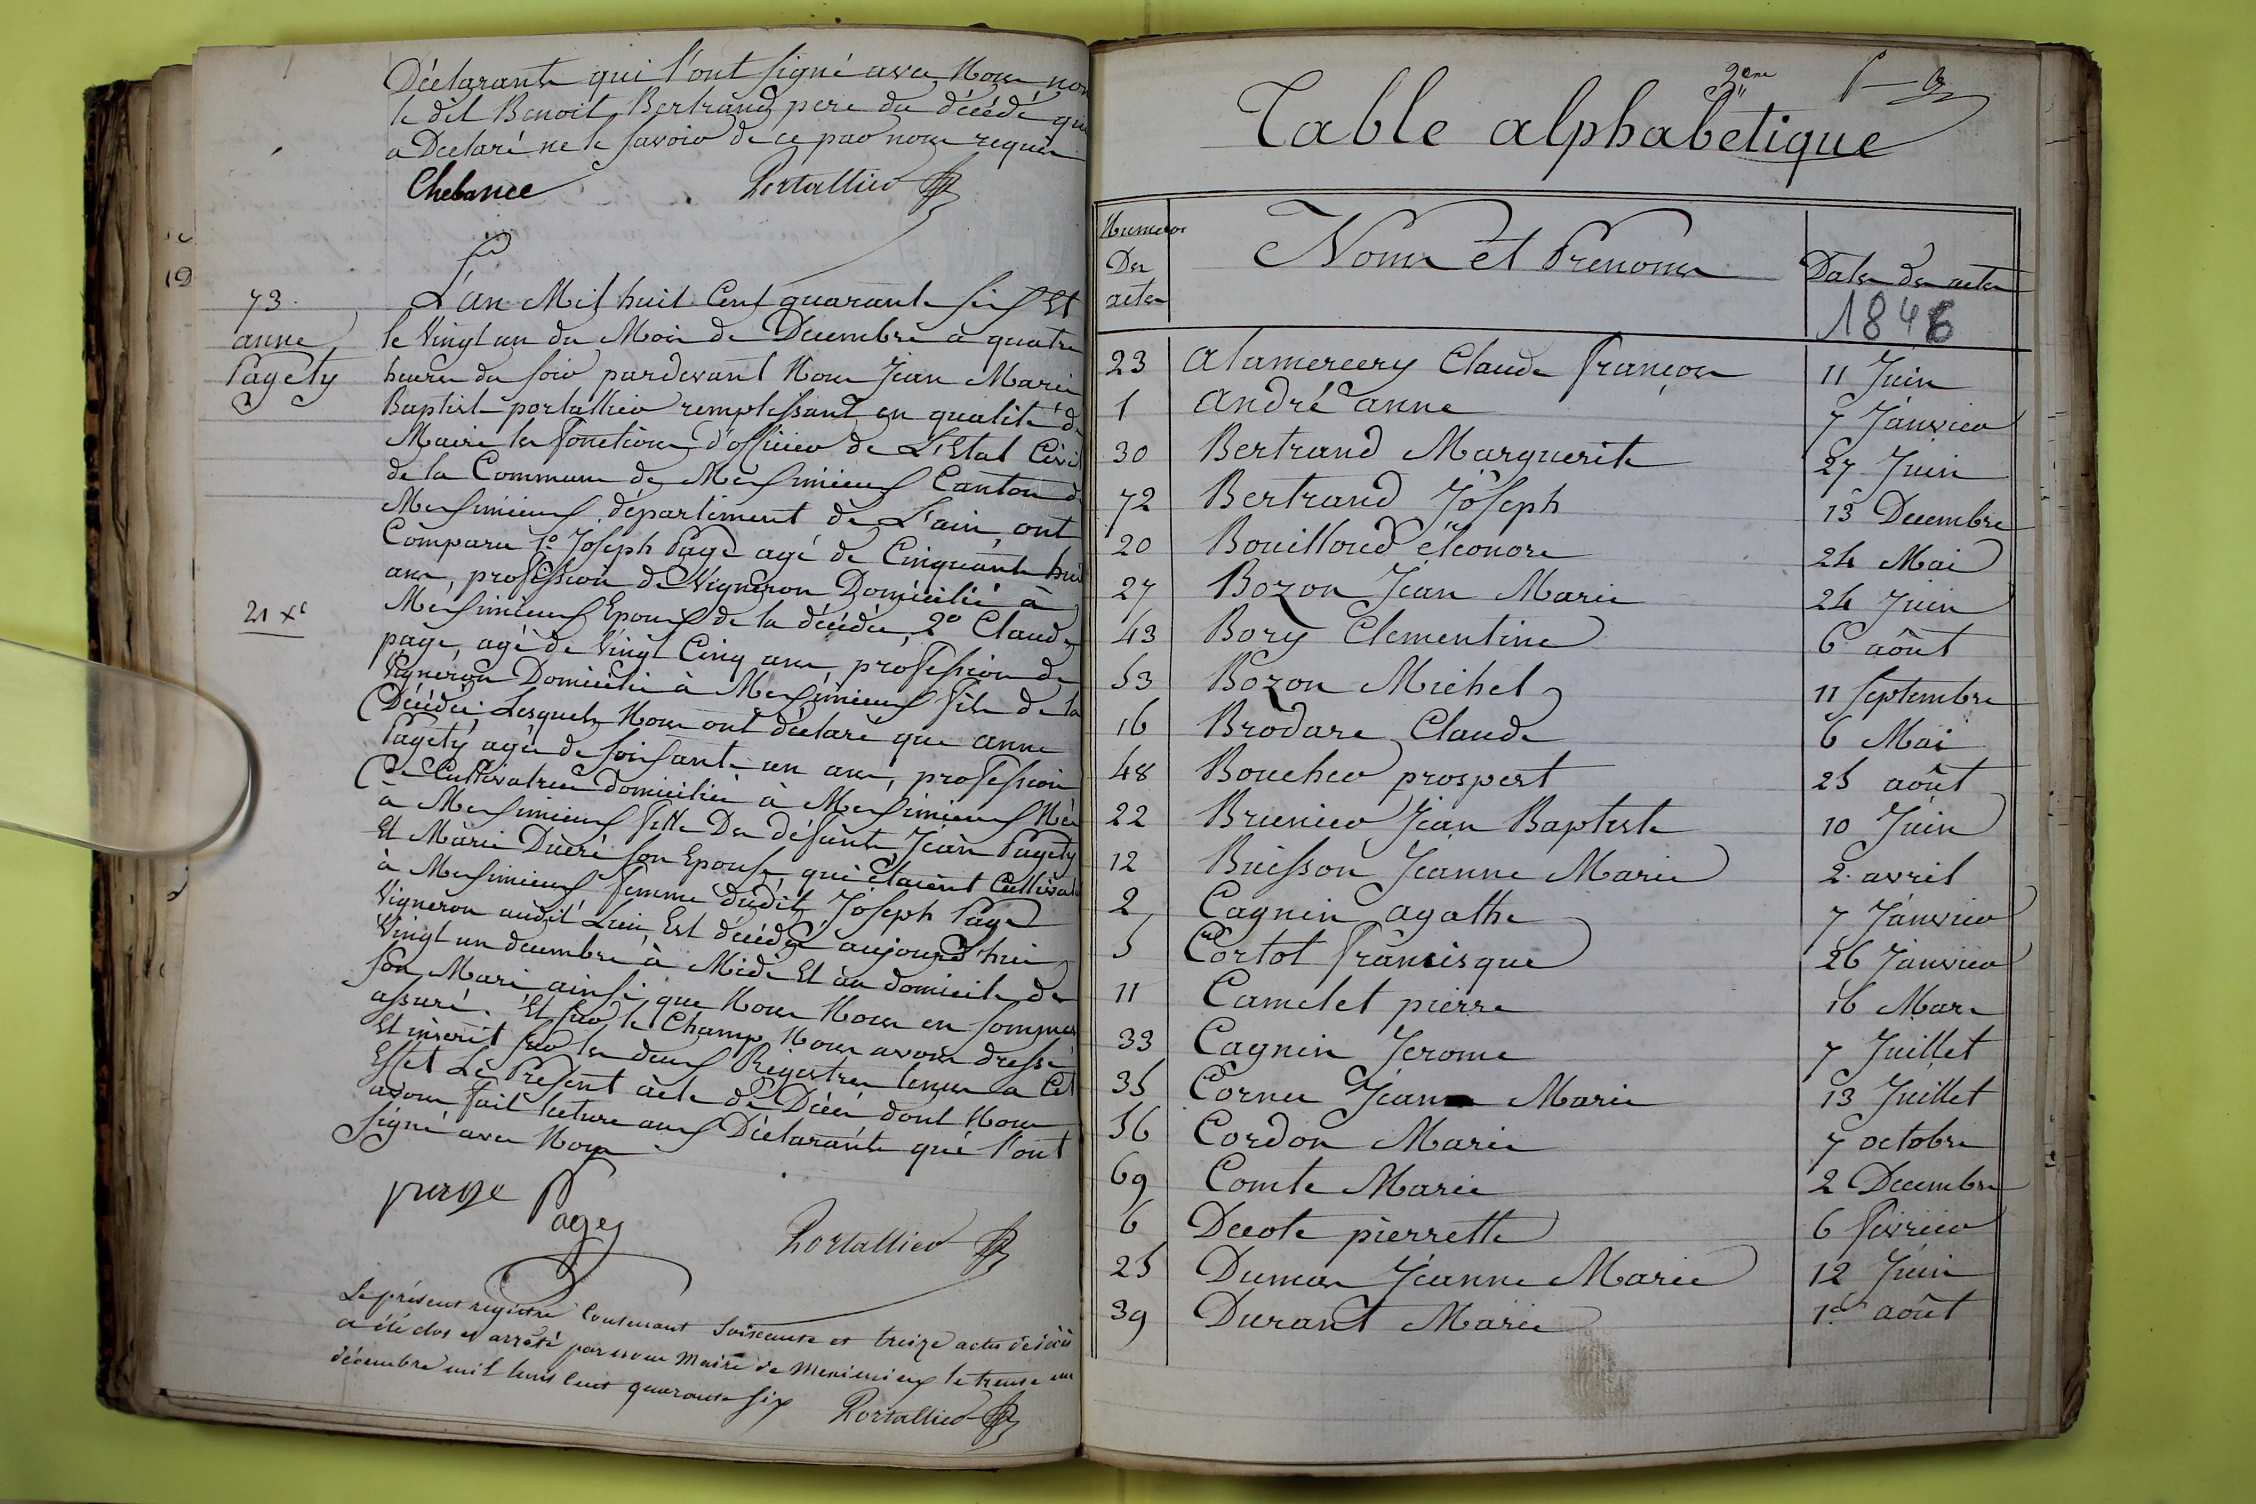 Déclarants qui l'ont signé avec Nous non
le dit Benoit Bertrand pere du décédé qui
a Déclaré ne le savoir de ce par nous requis
Chebance Portallier
73.
anne
Pagety
21 Xe
L'an Mil huit Cent quarante six Et
le Vingt un du Mois de Decembre à quatre
heures du soir pardevant Nous Jean Marie
Baptiste portallier remplissant en qualité de
Maire les fonctions d'officier de L'Etat Civil
de la Commune de Meximieux Canton de
Meximieux, département de L'ain, ont
Comparu 1o Joseph Page agé de Cinquante huit
ans, profession de Vigneron Domicilié à
Meximieux Epoux de la décédée, 2o Claude
page, agé de Vingt Cinq ans profession de
Vigneron Domicilié à Meximieux fils de la
Décédée; Lesquels Nous ont déclaré que anne
Pagety agée de soixante un ans, profession
De Cultivatrice domiciliée à Meximieux Née
à Meximieux fille Des défunts Jean Pagety
Et Marie son Epouse, qui étaient
à Meximieux femme dudit Joseph Page
Vigneron audit Lieu, Est décédée aujourd'hui
Vingt un decembre à Midi Et au domicile de
son Mari ainsi que Nous Nous en sommes
assuré. Et sur le Champ Nous avons dressé
Et inscrit sur les deux Régistres tenus a Cet
Effet Le Présent acte de Décès dont Nous
avons fait lecture aux Déclarants qui l'ont
signé avec Nous
Page
Portallier
Le présent registre Contenant Soixante et treize actes de décès
a été clos et arrêté par nous Maire de Meximieux le trente un
décembre mil huit Cent quarante six Portallier
Table alphabétique
Numeros
Des
actes
Noms et Prenoms
Dates des actes
1846
23 alamercery Claude françois 11 Juin
1 andré anne 7 Janvier
30 Bertrand Marguerite 27 Juin
72 Bertrand Joseph 13 Decembre
20 Bouilloud éléonore 24 Mai
27 Bozon Jean Marie 24 Juin
43 Bory Clementine 6 août
53 Bozon Michel 11 Septembre
16 Brodare Claude 6 Mai
48 Boucher prospert 25 août
22 Brunier Jean Baptiste 10 Juin
12 Buisson Jeanne Marie 2 avril
2 Cagnin agathe 7 Janvier
5 Cortot francisque 26 Janvier
11 Camelet pierre 16 Mars
33 Cagnin Jerome 7 Juillet
35 Cornu Jean Marie 13 Juillet
56 Cordon Marie 7 octobre
69 Comte Marie 2 Decembre
6 Decote pierrette 6 fevrier
25 Dumas Jeanne Marie 12 Juin
39 Durant Marie 1er août